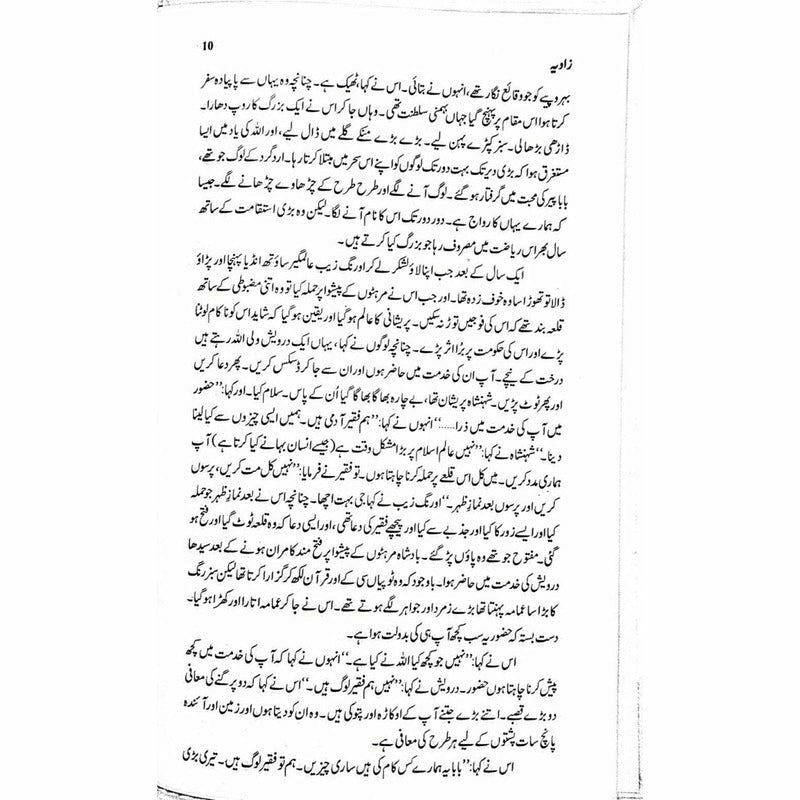 زاویہ
10
بہروپیے کو جو وقائع نگار تھے، انہوں نے بتائی۔ اس نے کہا، ٹھیک ہے۔ چنانچہ وہ یہاں سے پاپیادہ سفر
کرتا ہوا اس مقام پر پہنچ گیا جہاں بہمنی سلطنت تھی۔ وہاں جا کر اس نے ایک بزرگ کا روپ دھارا۔
ڈاڑھی بڑھا لی۔ سبز کپڑے پہن لیے۔ بڑے بڑے منکے گلے میں ڈال لیے، اور اللہ کی یاد میں ایسا
مستغرق ہوا کہ بڑی دیر تک بہت دور تک لوگوں کو اپنے اس سحر میں مبتلا کرتا رہا۔ اردگرد کے لوگ جو تھے،
بابا پیر کی محبت میں گرفتار ہو گئے۔ لوگ آنے لگے اور طرح طرح کے چڑھاوے چڑھانے لگے۔ جیسا
کہ ہمارے یہاں کا رواج ہے۔ دور دور تک اس کا نام آنے لگا۔ لیکن وہ بڑی استقامت کے ساتھ
سال بھر اس ریاضت میں مصروف رہا جو بزرگ کیا کرتے ہیں۔
ایک سال کے بعد جب اپنا لاؤ لشکر لے کر اورنگ زیب عالمگیر ساؤتھ انڈیا پہنچا اور پڑاؤ
ڈالا تو تھوڑا سا وہ خوف زدہ تھا۔ اور جب اس نے مرہٹوں کے پیشوا پر حملہ کیا تو وہ اتنی مضبوطی کے ساتھ
قلعہ بند تھے کہ اس کی فوجیں توڑ نہ سکیں۔ پریشانی کا عالم ہو گیا اور یقین ہو گیا کہ شاید اس کو ناکام لوٹنا
پڑے اور اس کی حکومت پر برا اثر پڑے۔ چنانچہ لوگوں نے کہا، یہاں ایک درویش ولی اللہ رہتے ہیں
درخت کے نیچے۔ آپ ان کی خدمت میں حاضر ہوں اور ان سے جا کر ڈسکس کریں۔ پھر دعا کریں
اور پھر ٹوٹ پڑیں۔ شہنشاہ پریشان تھا، بے چارہ بھاگا بھاگا گیا اُن کے پاس۔ سلام کیا۔ اور کہا: ”حضور
میں آپ کی خدمت میں ذرا......“ انہوں نے کہا: ”ہم فقیر آدمی ہیں۔ ہمیں ایسی چیزوں سے کیا لینا
دینا۔“ شہنشاہ نے کہا: ”نہیں عالم اسلام پر بڑا مشکل وقت ہے (جیسے انسان بہانے کیا کرتا ہے) آپ
ہماری مدد کریں۔ میں کل اس قلعے پر حملہ کرنا چاہتا ہوں۔ تو فقیر نے فرمایا: ”نہیں کل مت کریں، پرسوں
کریں اور پرسوں بعد نمازِ ظہر۔“ اورنگ زیب نے کہا جی بہت اچھا۔ چنانچہ اس نے بعد نمازِ ظہر جو حملہ
کیا اور ایسے زور کا کیا اور جذبے سے کیا اور پیچھے فقیر کی دعا تھی، اور ایسی دعا کہ وہ قلعہ ٹوٹ گیا اور فتح ہو
گئی۔ مفتوح جو تھے وہ پاؤں پڑ گئے۔ بادشاہ مرہٹوں کے پیشوا پر فتح مند کامران ہونے کے بعد سیدھا
درویش کی خدمت میں حاضر ہوا۔ باوجود کہ وہ ٹوپیاں سی کے اور قرآن لکھ کر گزارا کرتا تھا لیکن سبز رنگ
کا بڑا سا عمامہ پہنتا تھا بڑے زمرد اور جواہر لگے ہوتے تھے۔ اس نے جا کر عمامہ اتارا اور کھڑا ہو گیا۔
دست بستہ کہ حضور یہ سب کچھ آپ ہی کی بدولت ہوا ہے۔
اس نے کہا: ”نہیں جو کچھ کیا اللہ نے کیا ہے۔“ انہوں نے کہا کہ آپ کی خدمت میں کچھ
پیش کرنا چاہتا ہوں حضور۔ درویش نے کہا: ”نہیں ہم فقیر لوگ ہیں۔“ اس نے کہا کہ دو پرگنے کی معافی
دو بڑے قصبے۔ اتنے بڑے جتنے آپ کے اوکاڑہ اور پتوکی ہیں۔ وہ ان کو دیتا ہوں اور زمین اور آئندہ
پانچ سات پشتوں کے لیے ہر طرح کی معافی ہے۔
اس نے کہا: ”بابا یہ ہمارے کس کام کی ہیں ساری چیزیں۔ ہم تو فقیر لوگ ہیں۔ تیری بڑی